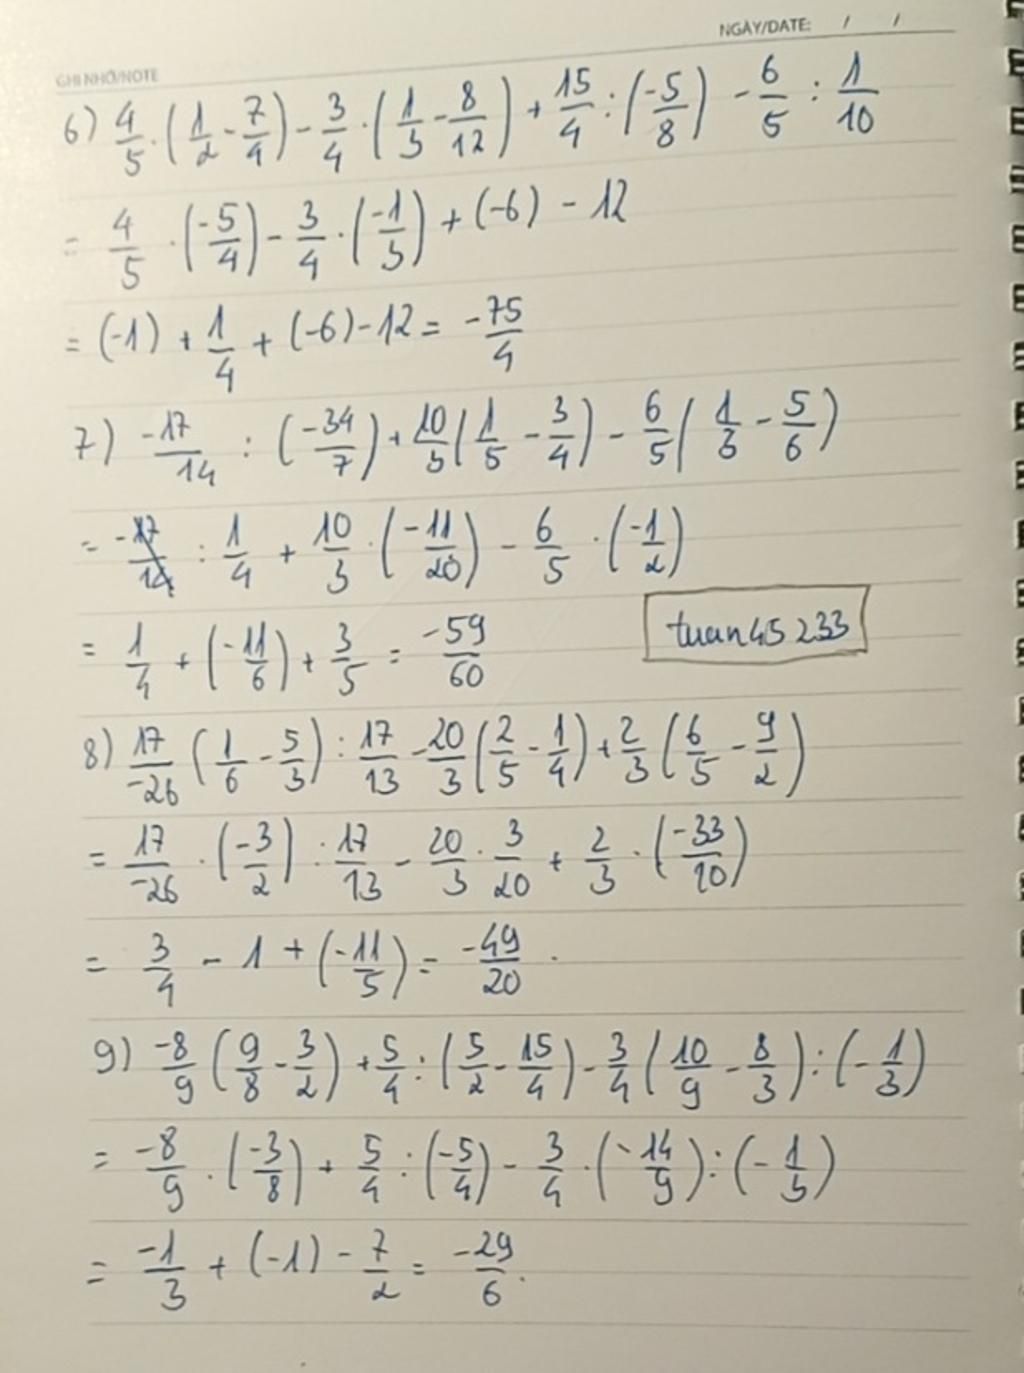 NGÀY/DATE: / /
GHI NHỚ/NOTE
6) 4/5 . (1/2 - 7/4) - 3/4 . (1/3 - 8/12) + 15/4 : (-5/8) - 6/5 : 1/10
= 4/5 . (-5/4) - 3/4 . (-1/3) + (-6) - 12
= (-1) + 1/4 + (-6) - 12 = -75/4
7) -17/14 : (-34/7) + 10/3 (1/5 - 3/4) - 6/5 (1/3 - 5/6)
= -17/14 : 1/4 + 10/3 . (-11/20) - 6/5 . (-1/2)
= 1/4 + (-11/6) + 3/5 = -59/60
tuan45233
8) 17/-26 (1/6 - 5/3) : 17/13 - 20/3 (2/5 - 1/4) + 2/3 (6/5 - 9/2)
= 17/-26 . (-3/2) : 17/13 - 20/3 . 3/20 + 2/3 . (-33/10)
= 3/4 - 1 + (-11/5) = -49/20 .
9) -8/9 (9/8 - 3/2) + 5/4 : (5/2 - 15/4) - 3/4 (10/9 - 8/3) : (-1/3)
= -8/9 . (-3/8) + 5/4 : (-5/4) - 3/4 . (-14/9) : (-1/3)
= -1/3 + (-1) - 7/2 = -29/6 .